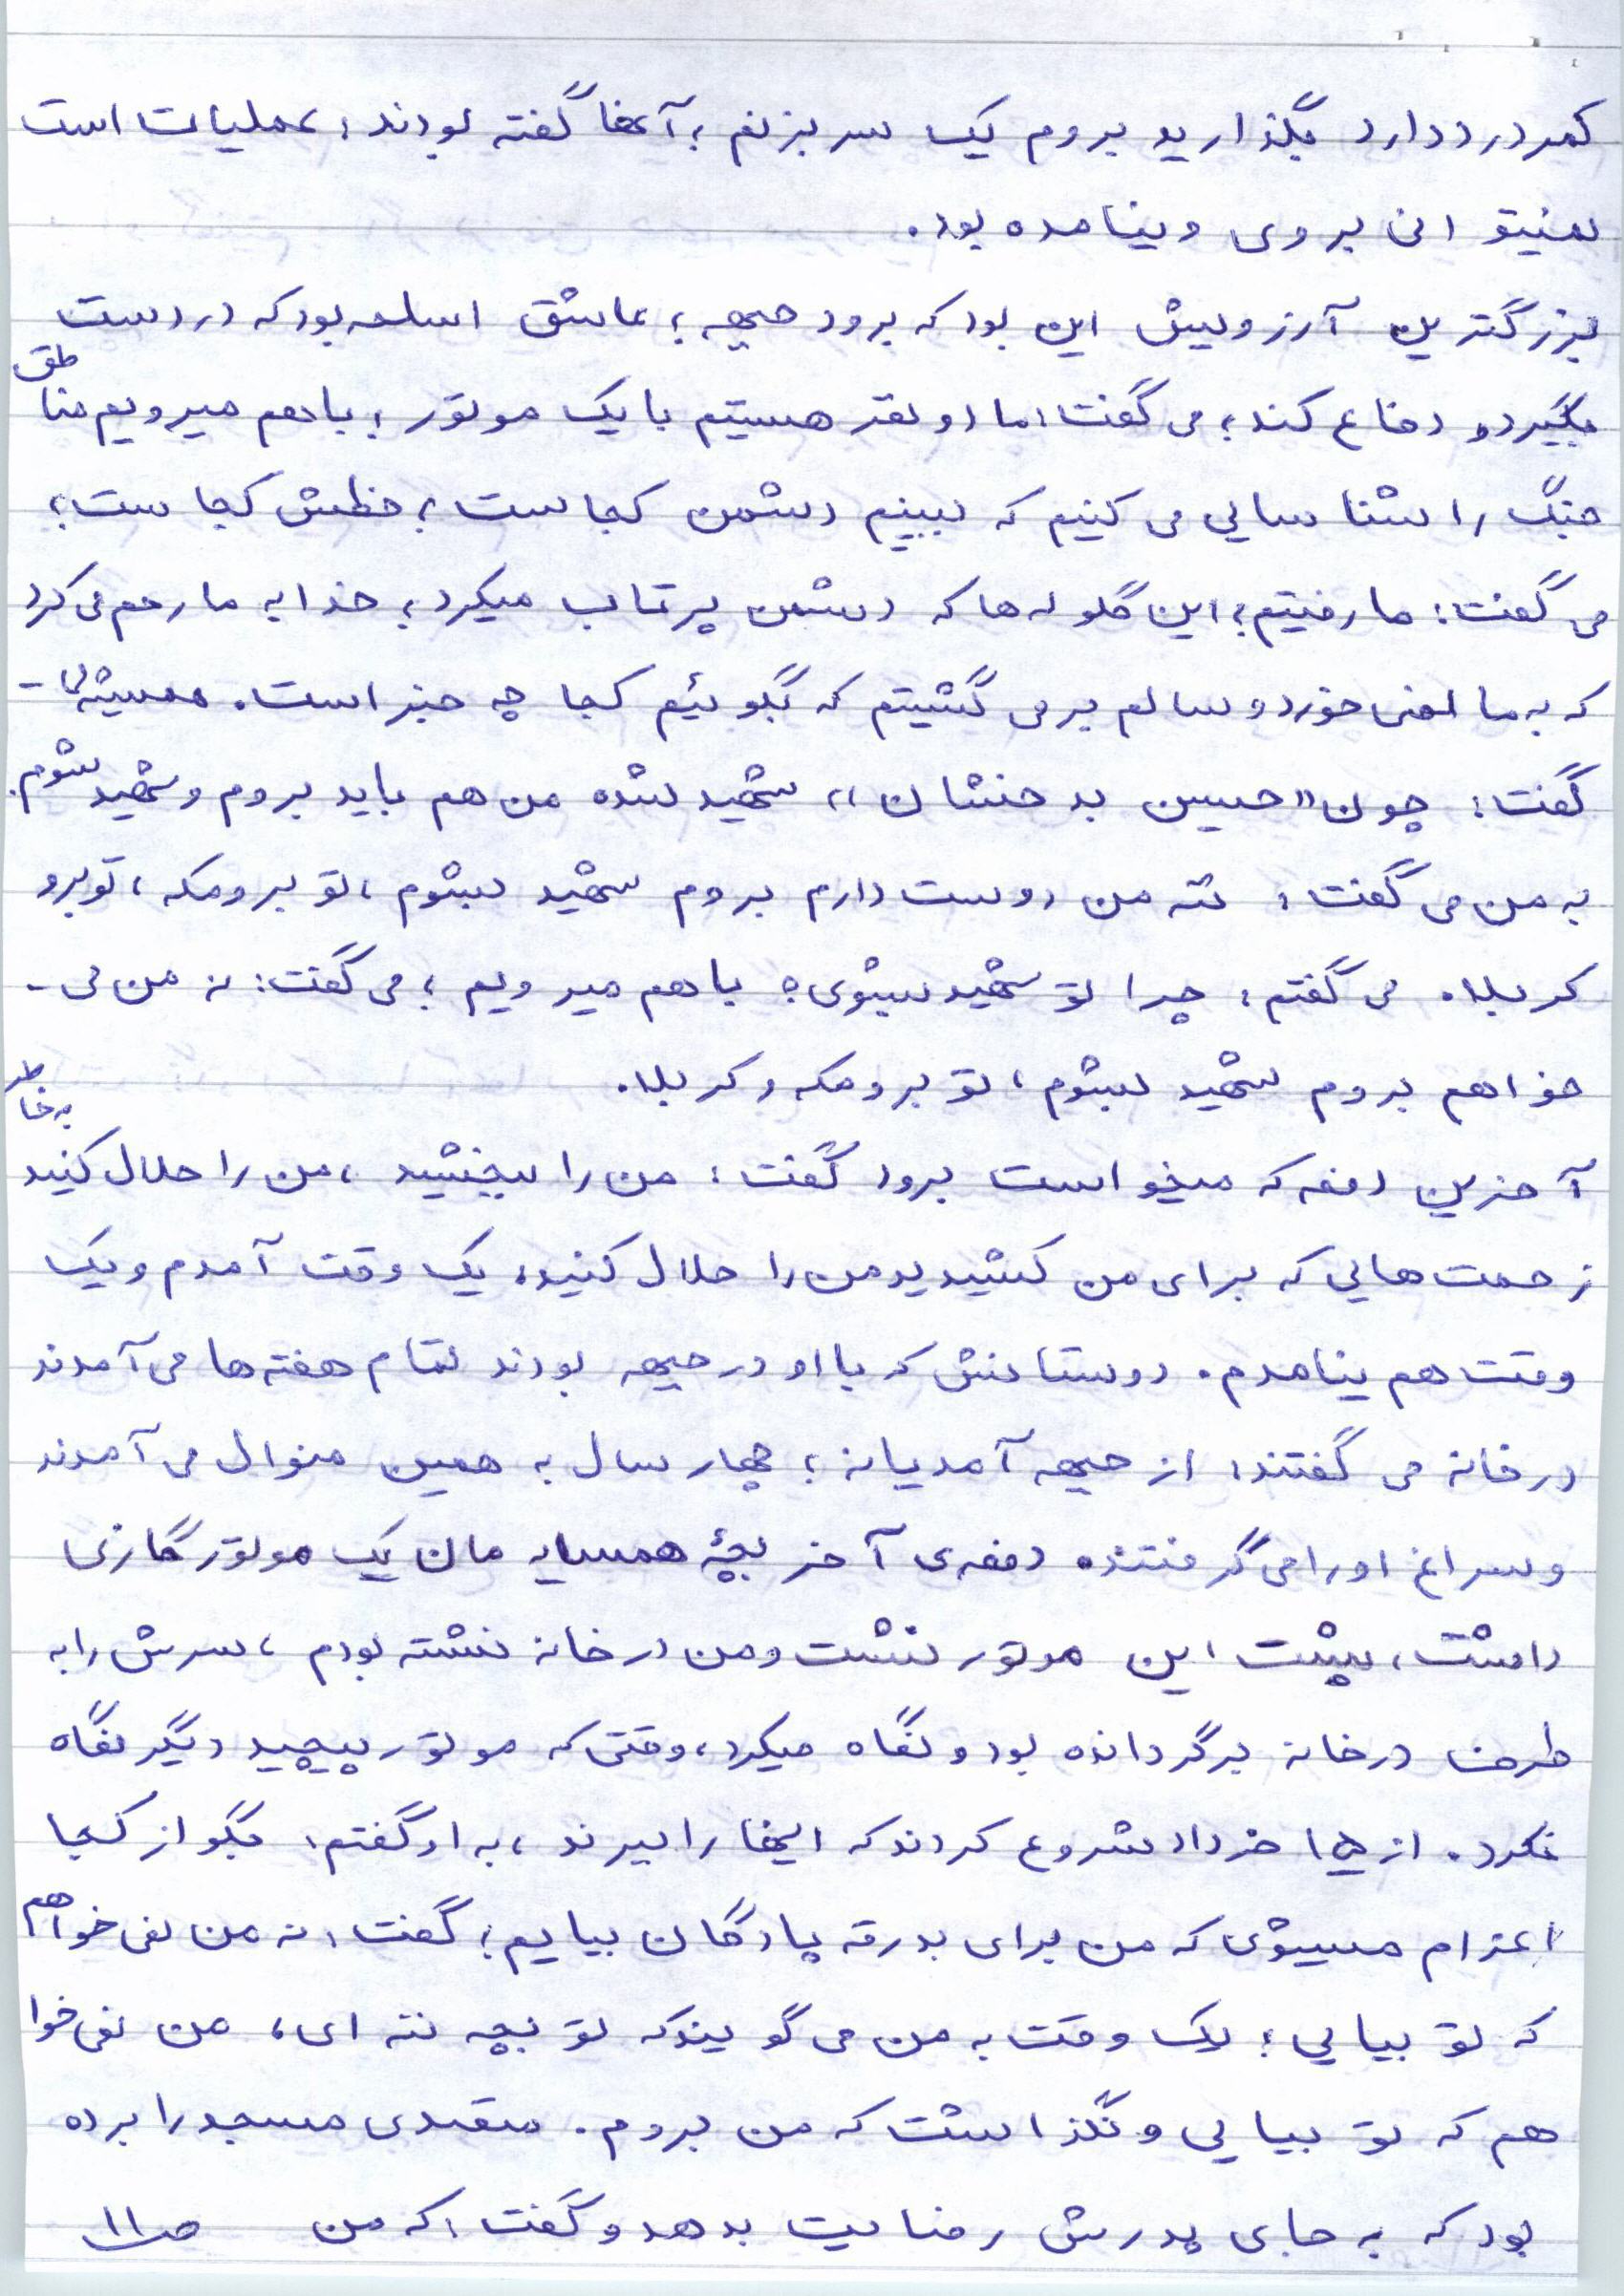 کمردرد دارد بگذارید بروم یک سر بزنم؛ آنها گفته بودند: عملیات است
نمیتوانی بروی و نیامده بود.
بزرگترین آرزویش این بود که برود جبهه؛ عاشق اسلحه بود که در دست
بگیرد و دفاع کند؛ می گفت: ما دو نفر هستیم با یک موتور؛ با هم میرویم مناطق
جنگ را شناسایی می کنیم که ببینیم دشمن کجاست؛ خطش کجاست؛
می گفت: ما رفتیم؛ این گلوله ها که دشمن پرتاب میکرد؛ خدا به ما رحم می کرد
که به ما نمی خورد و سالم برمی گشتیم که بگوئیم کجا چه خبر است. همیشه می-
گفت: چون «حسین بدخشان» شهید شده من هم باید بروم و شهید شوم.
به من می گفت: ننه من دوست دارم بروم شهید بشوم، تو برو مکه، تو برو
کربلا. می گفتم: چرا تو شهید بشوی؟ با هم میرویم؛ می گفت: نه من می-
خواهم بروم شهید بشوم، تو برو مکه و کربلا.
آخرین دفعه که میخواست برود گفت: من را ببخشید، من را حلال کنید به خاطر
زحمت هایی که برای من کشیدید من را حلال کنید، یک وقت آمدم و یک
وقت هم نیامدم. دوستانش که با او در جبهه بودند تمام هفته ها می آمدند
در خانه می گفتند: از جبهه آمد یا نه؛ چهار سال به همین منوال می آمدند
و سراغ او را می گرفتند. دفعه ی آخر بچهٔ همسایه مان یک موتور گازی
داشت، پشت این موتور نشست و من در خانه نشسته بودم، سرش را به
طرف در خانه برگردانده بود و نگاه میکرد، وقتی که موتور پیچید دیگر نگاه
نکرد. از ۱۵ خرداد شروع کردند که اینها را ببرند، به او گفتم: بگو از کجا
اعزام میشوی که من برای بدرقه پادگان بیایم؛ گفت: نه من نمی خواهم
که تو بیایی؛ یک وقت به من می گویند که تو بچه ننه ای، من نمی خوا
هم که تو بیایی و نگذاشت که من بروم. متصدی مسجد را برده
بود که به جای پدرش رضایت بدهد و گفت: که من ص۱۱